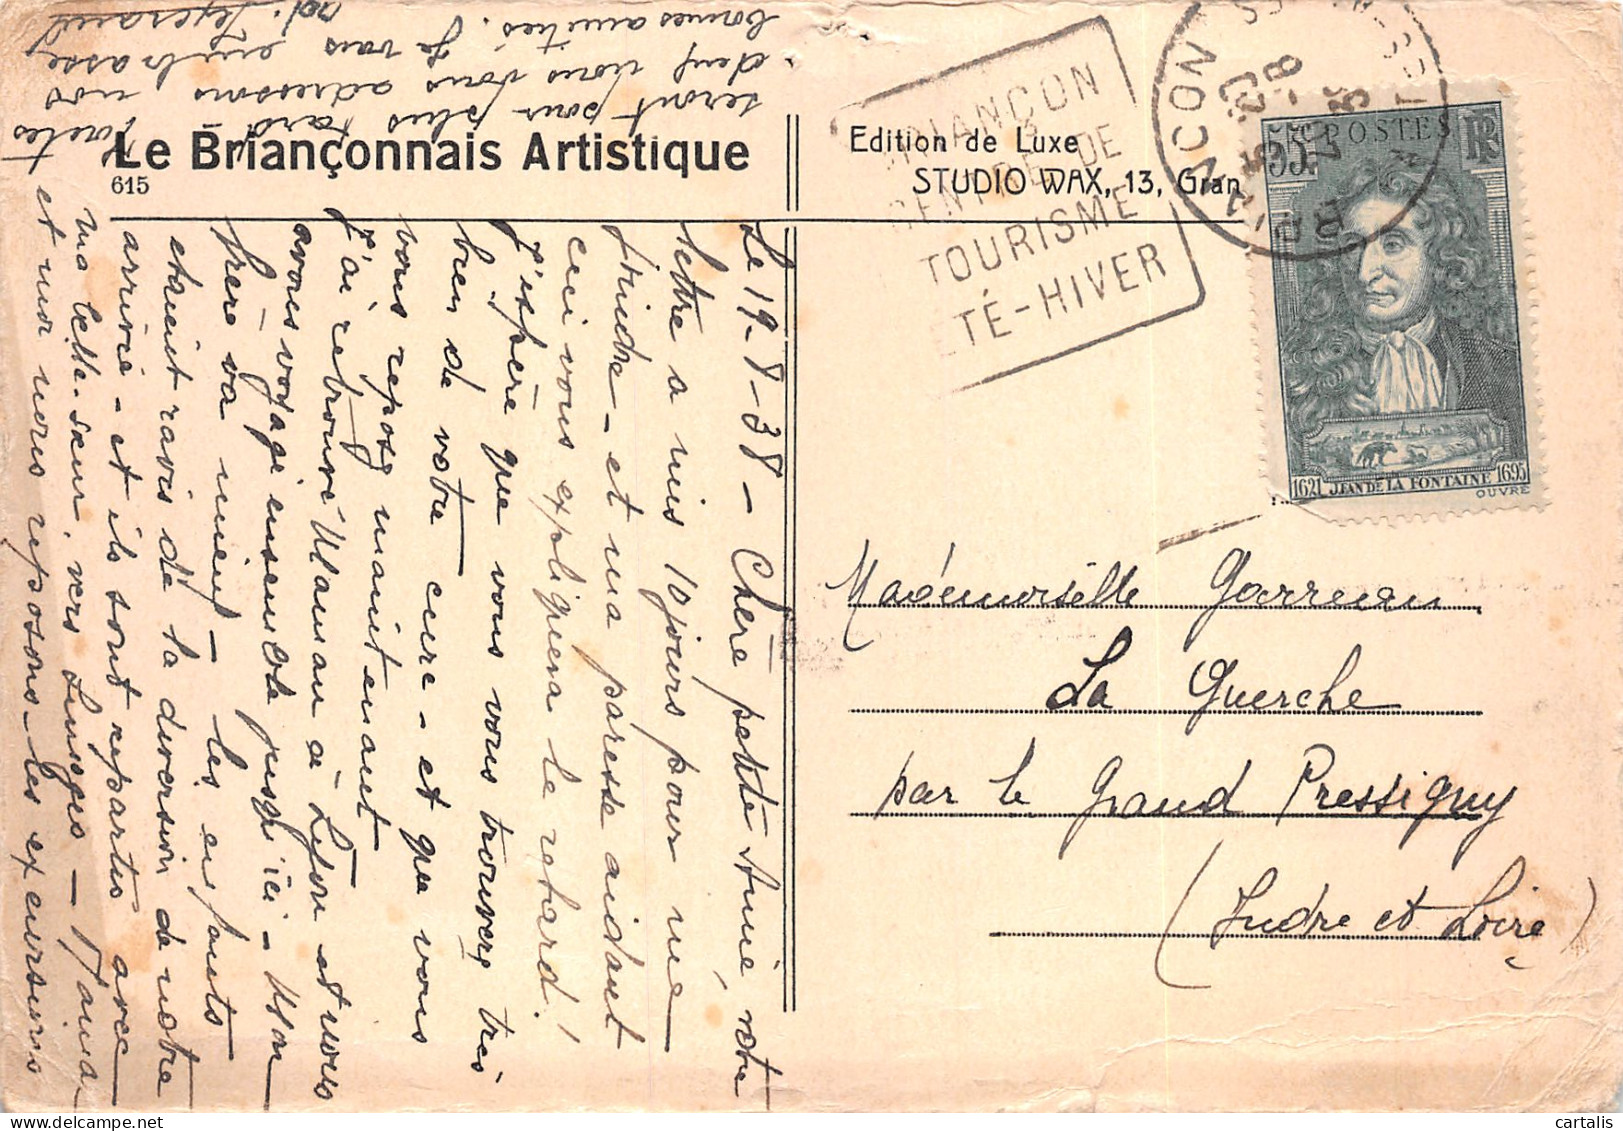 Le Briançonnais Artistique
615
Edition de Luxe
STUDIO WAX, 13, Gran
BRIANÇON
CENTRE DE
TOURISME
ETÉ-HIVER
BRIANÇON
55c POSTES RF
1621 JEAN DE LA FONTAINE 1695
OUVRÉ
Mademoiselle Garreau
La Guerche
par le Grand Pressigny
(Indre et Loire)
Le 19-8-38 - Chère petite Amie, votre
lettre a mis 10 jours pour me
joindre - et ma paresse aidant
ceci vous expliquera le retard!
J'espère que vous vous trouvez très
bien de votre cure - et que vous
vous reposez maintenant
J'ai retrouvé Maman à Lyon et nous
avons voyagé ensemble jusqu'ici - Mon
frère va mieux - les enfants
étaient ravis de la diversion de notre
arrivée - et ils sont repartis avec
ma belle-sœur, vers Limoges - Mama-
et moi nous reposons - les excursions
seront pour plus tard. Toutes
deux nous vous adressons nos
bonnes amitiés. Je vous embrasse